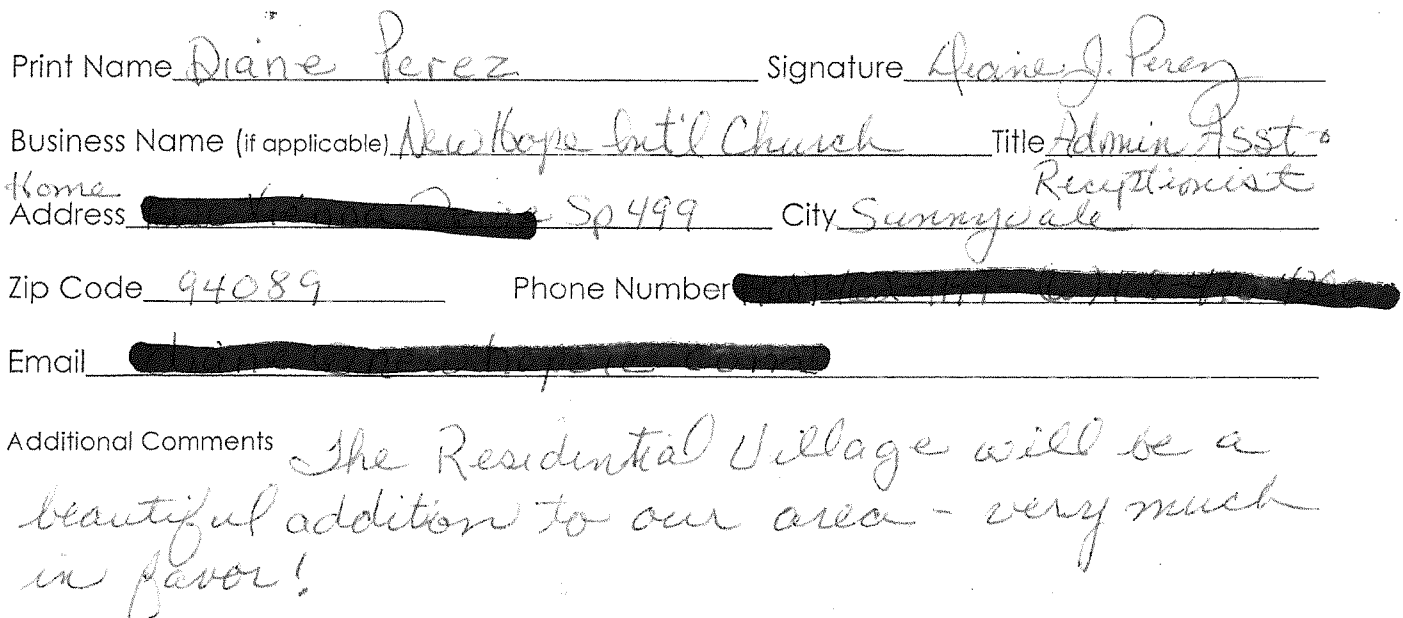 Print Name Diane Perez Signature Diane J. Perez
Business Name (if applicable) New Hope Int'l Church Title Admin Asst -
Home Receptionist
Address Sp 499 City Sunnyvale
Zip Code 94089 Phone Number
Email
Additional Comments The Residential Village will be a
beautiful addition to our area - very much
in favor!